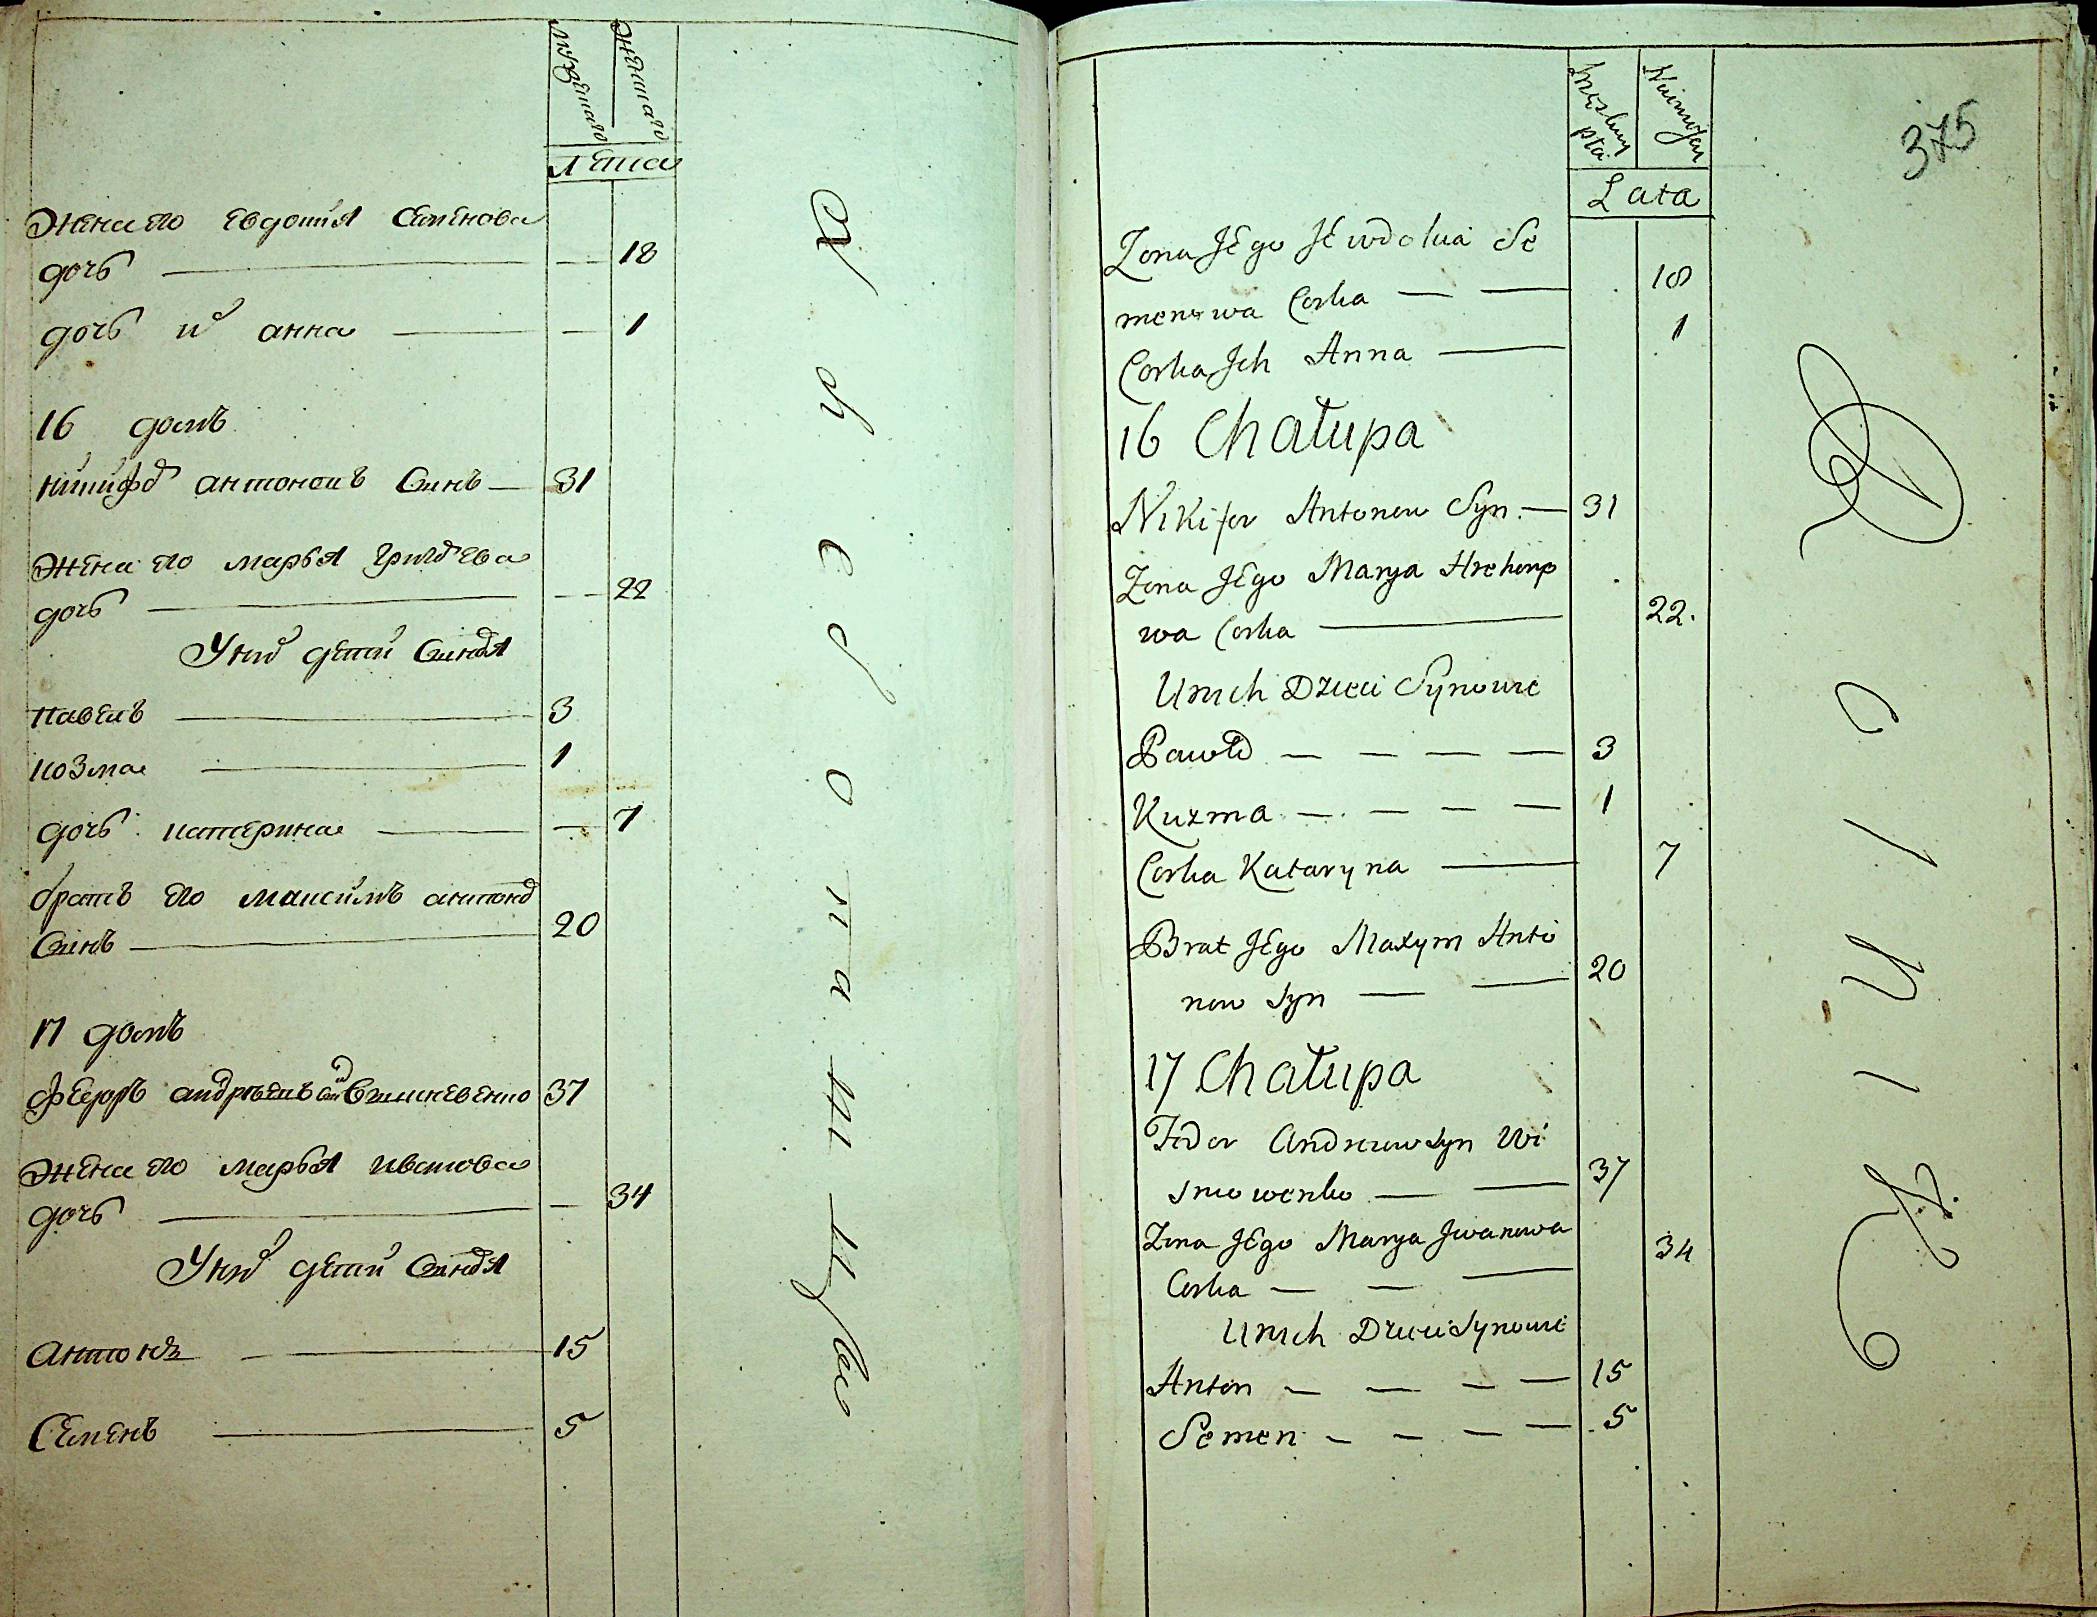 мужеска
женска
Лѣта
Жена его Евдокия Семенова
дочь 18
дочь их анна 1
16 домъ
Никифор антоновъ Синъ 31
Жена его марья григорева
дочь 22
У них дети Синовя
павелъ 3
козма 1
дочь катерина 7
братъ его максимъ антонов
Синъ 20
17 домъ
Федоръ андреевъ син 37
Жена его марья иванова
дочь 34
У них дети Синовя
Антонъ 15
Семенъ 5
375
Męzkiey
płci
Lata
Zona Jego Jewdokia Se
menowa Corka 18
Corka Jch Anna 1
16 Chałupa
Nikifor Antonow Syn 31
Zona Jego Marya Hrehorio
wa Corka 22.
U nich Dzieci Synowie
Paweł 3
Kuzma 1
Corka Kataryna 7
Brat Jego Maxym Anto
now Syn 20
17 Chałupa
Fedor Andreiew Syn Wi
sniowenko 37
Zona Jego Marya Jwanowa
Corka 34
U nich Dzieci Synowie
Anton 15
Semen 5